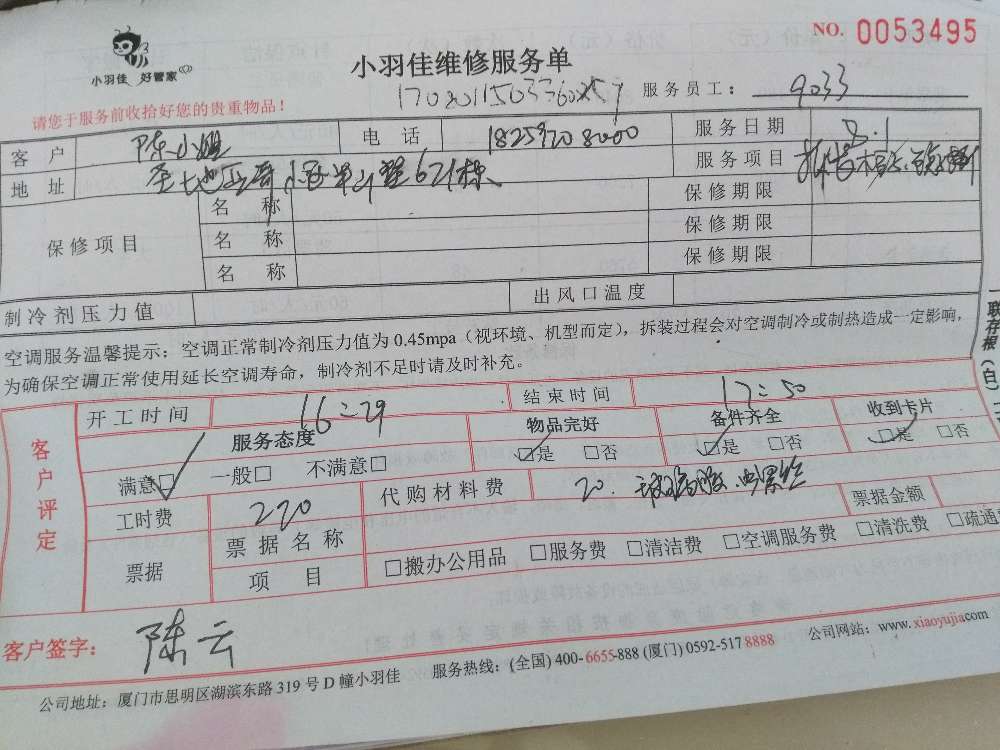 NO. 0053495
小羽佳 好管家
小羽佳维修服务单
请您于服务前收拾好您的贵重物品！
服务员工： 9033
客户 陈小姐 电话 服务日期 8.1
地址 621栋 服务项目
保修项目 名称 保修期限
名称 保修期限
名称 保修期限
制冷剂压力值 出风口温度
空调服务温馨提示：空调正常制冷剂压力值为 0.45mpa（视环境、机型而定），拆装过程会对空调制冷或制热造成一定影响，
为确保空调正常使用延长空调寿命，制冷剂不足时请及时补充。
一联存根（白）
客户评定
开工时间 16:29 结束时间 17:50
服务态度 物品完好 备件齐全 收到卡片
满意□ 一般□ 不满意□ □是 □否 □是 □否 □是 □否
工时费 220 代购材料费 20. 玻璃胶 螺丝 票据金额
票据 票据名称
项目 □搬办公用品 □服务费 □清洁费 □空调服务费 □清洗费 □疏通
客户签字： 陈云
公司地址：厦门市思明区湖滨东路 319 号 D 幢小羽佳 服务热线：(全国) 400-6655-888 (厦门) 0592-517 8888 公司网站：www.xiaoyujia.com